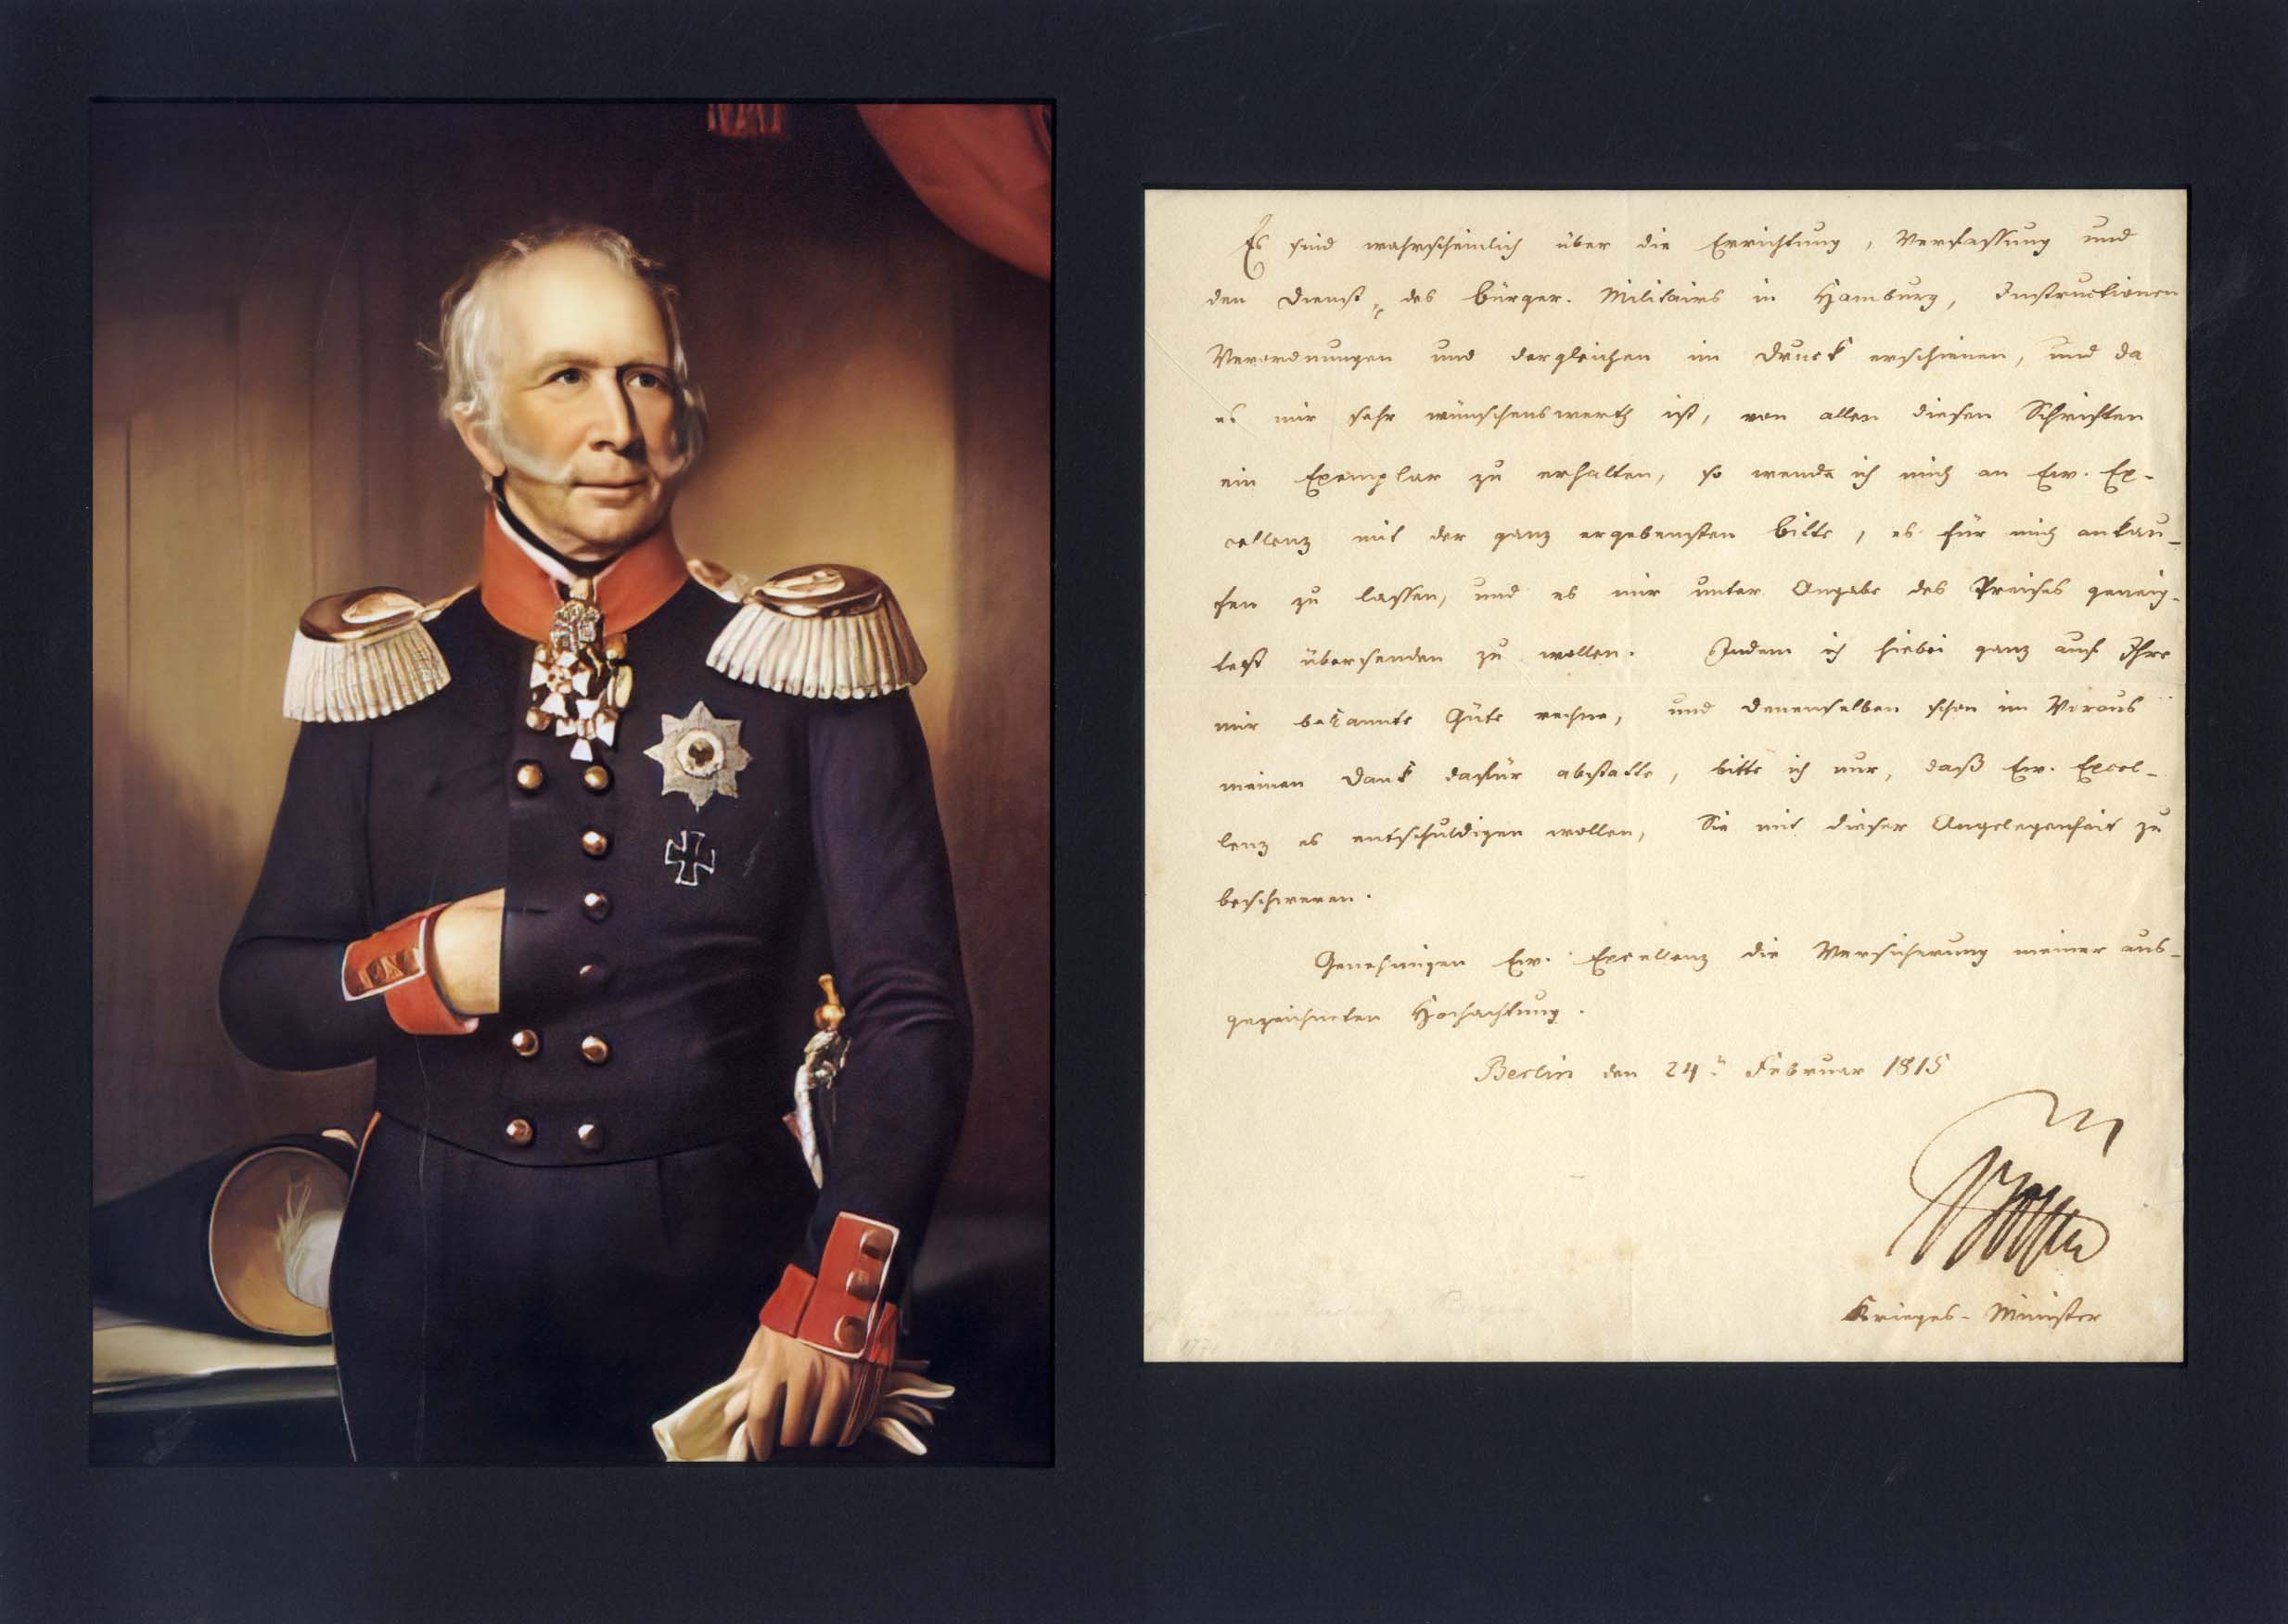 Es sind wahrscheinlich über die Errichtung, Verfassung und
den Dienst des Bürger-Militairs in Hamburg, Instructionen
Verordnungen und dergleichen im Druck erschienen, und da
es mir sehr wünschenswerth ist, von allen diesen Schriften
ein Exemplar zu erhalten, so wende ich mich an Ew. Ex-
cellenz mit der ganz ergebensten Bitte, es für mich ankau-
fen zu lassen, und es mir unter Angabe des Preises geneig-
test übersenden zu wollen. Indem ich hiebei ganz auf Ihre
mir bekannte Güte rechne, und Denenselben schon im Voraus
meinen Dank dafür abstatte, bitte ich nur, daß Ew. Excel-
lenz es entschuldigen wollen, Sie mit dieser Angelegenheit zu
beschweren.
Genehmigen Ew. Excellenz die Versicherung meiner aus-
gezeichneten Hochachtung.
Berlin den 24t Februar 1815
Boyen
Krieges-Minister